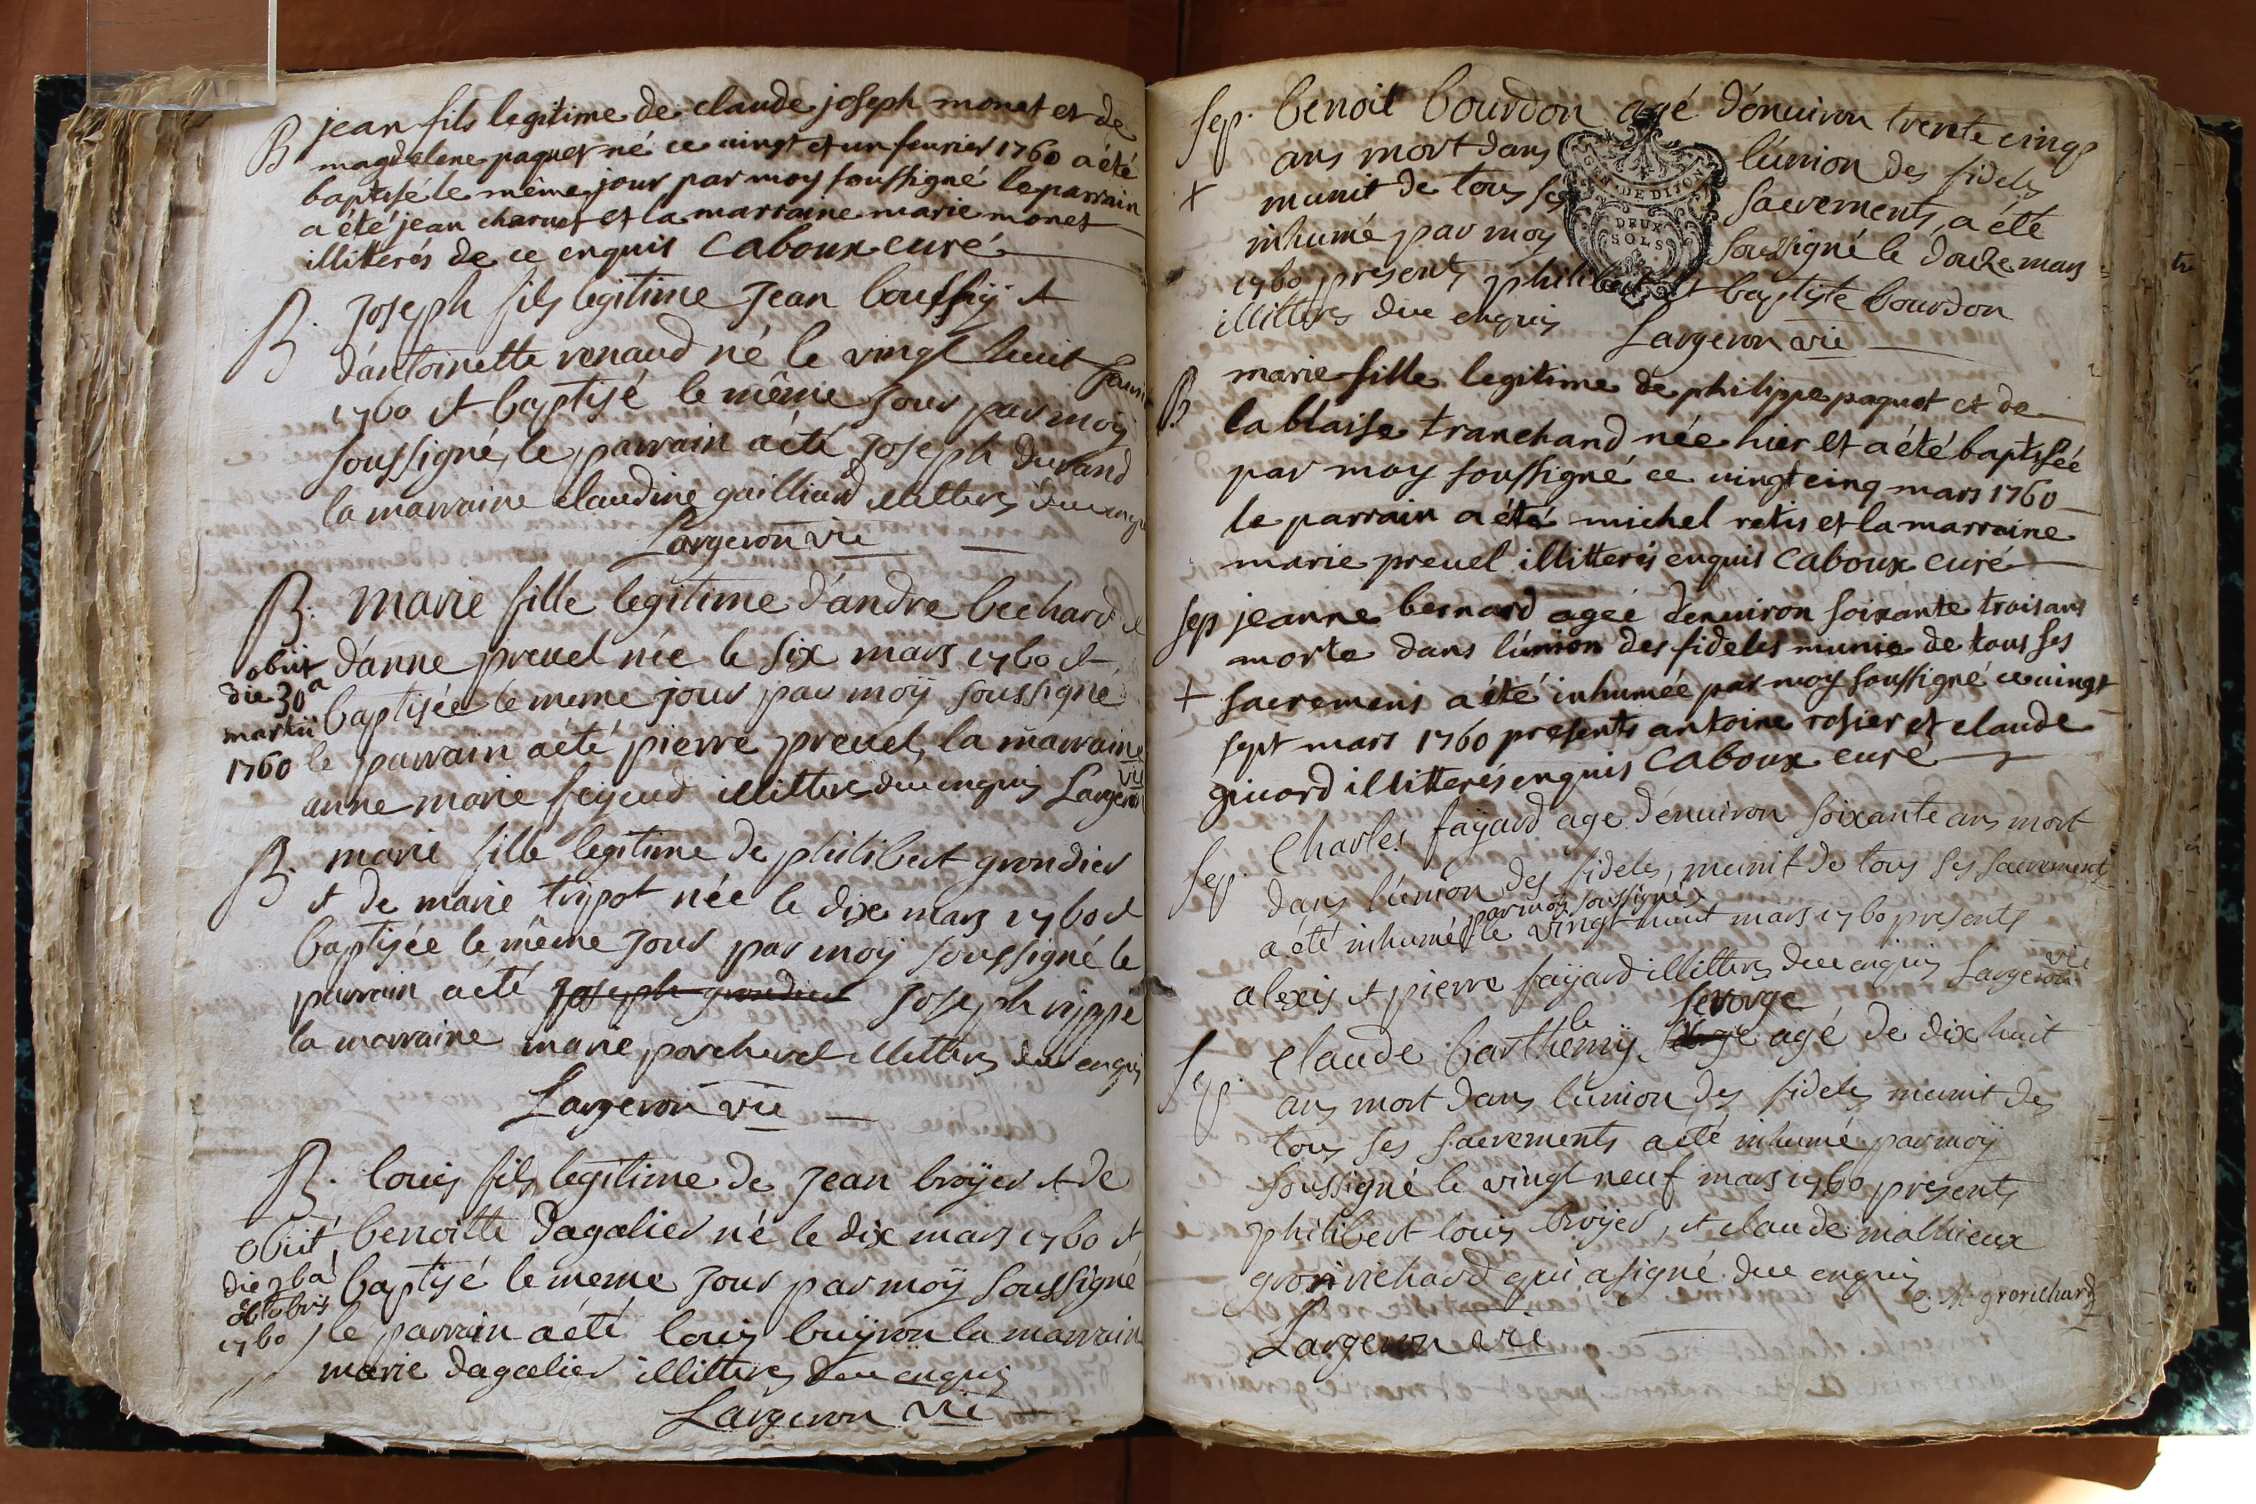 B jean fils legitime de claude joseph monet et de
magdelene paquet né ce vingt et un fevrier 1760 a été
baptisé le même jour par moy soussigné le parrain
a été jean charnet et la marraine marie monet
illitterés de ce enquis Caboux curé
B. Joseph fils legitime Jean bouffiy et
d'antoinette renaud né le vingt huit
1760 et baptisé le même Jour par moy
soussigné, le parrain a été Joseph durand
la marraine claudine gailliard illitteres
Largeron vic
B. marie fille legitime d'andre bechard et
d'anne prevel née le six mars 1760 et
baptisée le meme jour par moÿ soussigné
le parrain a été pierre prevel, la marraine
anne marie feyeud illitteres due enquis Largeron
vic
obiit
die 30a
martii
1760
B. marie fille legitime de philibert grondier
et de marie tripot née le dix mars 1760 et
baptisée le même Jour par moy soussigné le
parrain a été Joseph grondier Joseph rippe
la marraine marie porcheret illitteres due enquis
Largeron vic
B. louis fils legitime de Jean broÿer et de
benoitte dagalier né le dix mars 1760 et
baptisé le meme Jour par moÿ soussigné
le parrain a été louis buÿron la marrain
marie dagalier illitteres due enquis
Largeron vic
obiit
die 9ba
octobris
1760
sep. benoit bourdon agé d'environ trente cinq
ans mort dans l'union des fideles
+ munit de tous ses sacrements, a été
inhumé par moy soussigné le douze mars
1760 presents philibert et baptiste bourdon
illitteres due enquis Largeron vic
GEN. DE DIJON
DEUX
SOLS
B marie fille legitime de philippe paquet et de
la blaise tranchand née hier et a été baptisée
par moy soussigné ce vingt cinq mars 1760
le parrain a été michel retis et la marraine
marie prevel illitterés enquis Caboux curé
sep jeanne bernard agée d'environ soixante trois ans
morte dans l'union des fideles munie de tous ses
+ sacremens a été inhumée par moy soussigné ce vingt
sept mars 1760 presents antoine rosier et claude
givard illitterés enquis Caboux curé
sep. Charles faÿard age d'environ soixante ans mort
dans l'union des fideles, munit de tous ses sacrements
par moy soussigné
a été inhumé le vingt huit mars 1760 presents
alexis et pierre faÿard illitteres due enquis Largeron
vic
le severge
sep. Claude barthemÿ agé de dix huit
ans mort dans l'union des fideles munit des
tous ses sacrements a été inhumé par moÿ
soussigné le vingt neuf mars 1760 presents
philibert louis broÿer, et claude mathieux
grorichard qui a signé due enquis
C. M. grorichard
Largeron vic